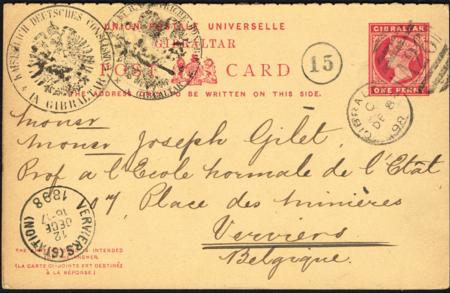 UNION POSTALE UNIVERSELLE
GIBRALTAR
POST CARD
THE ADDRESS TO BE WRITTEN ON THIS SIDE.
KAISERLICH DEUTSCHES CONSULAT
IN GIBRALTAR
15
GIBRALTAR
ONE PENNY
GIBRALTAR
DE 8
98
Monsr
Monsr Joseph Gilet,
Prof à l'Ecole normale de l'Etat
17, Place des minières
Verviers
Belgique.
VERVIERS (STATION)
12
DEC
16-17
1898
(LA CARTE CI-JOINTE EST DESTINÉE
À LA RÉPONSE.)